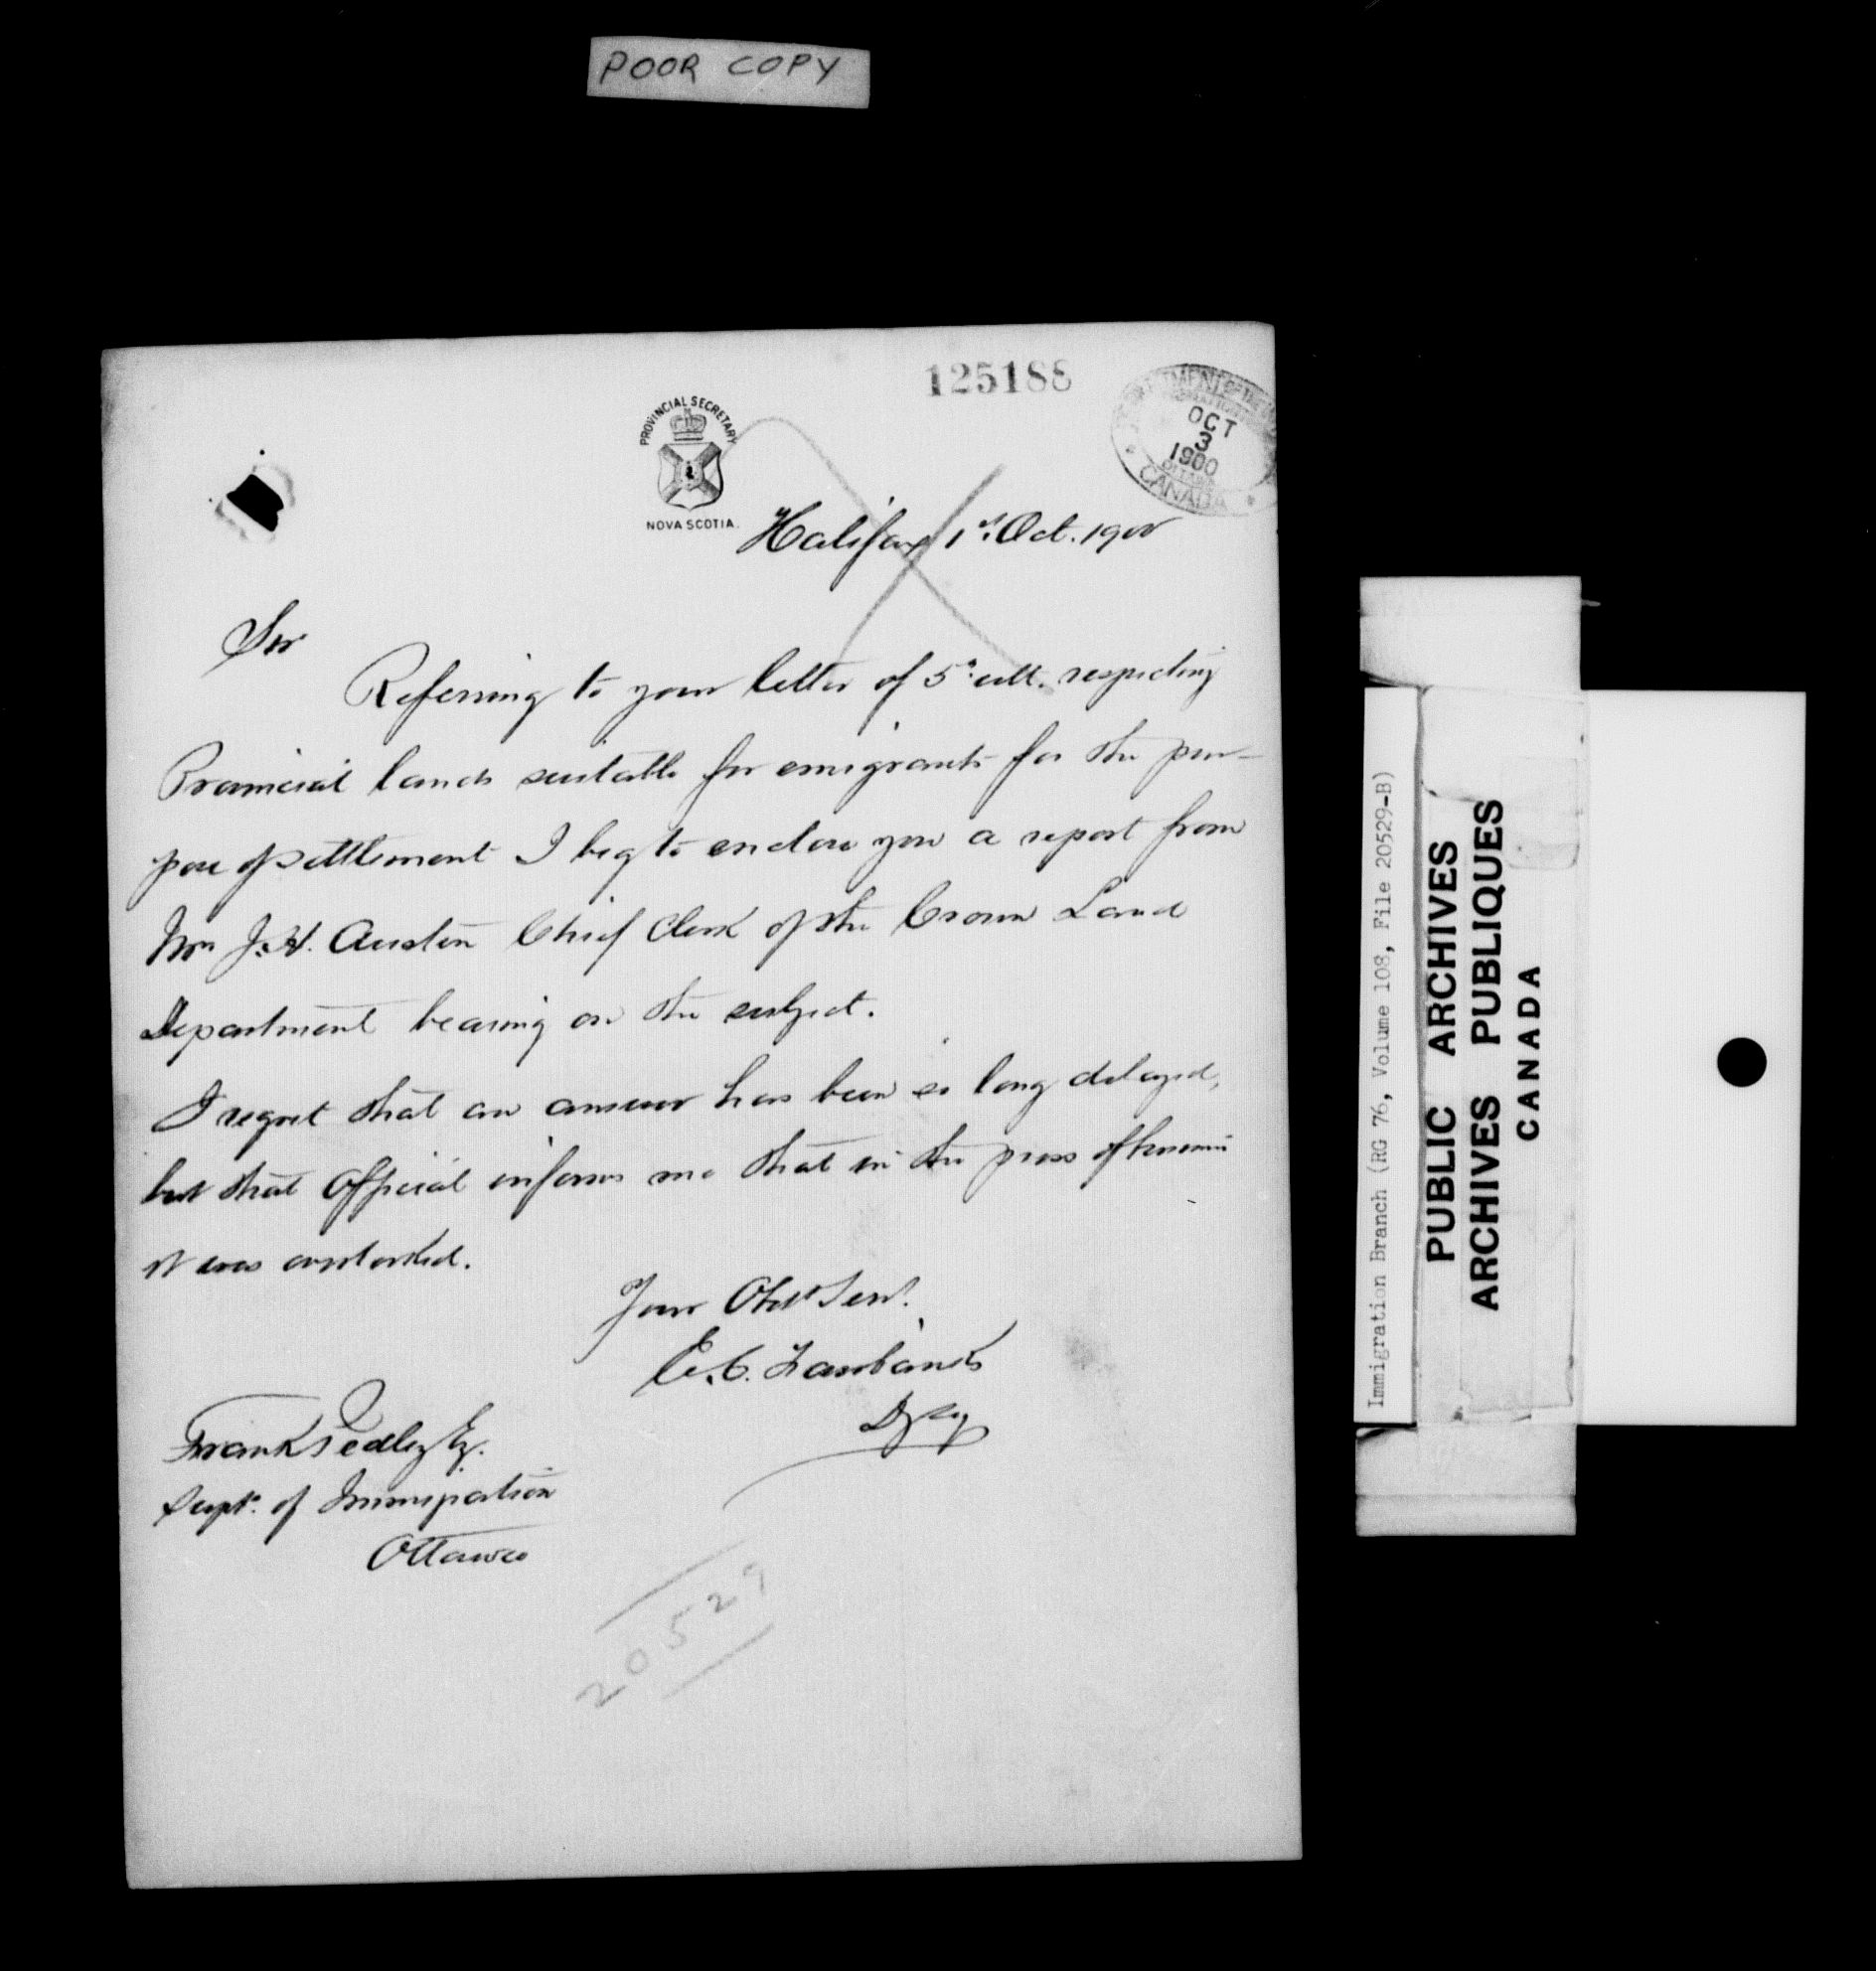 POOR COPY
125188
PROVINCIAL SECRETARY
NOVA SCOTIA.
OCT
3
1900
OTTAWA
CANADA
Halifax 1st Oct. 1900
Sir
Referring to your letter of 5th ult. respecting
Provincial lands suitable for emigrants for the pur-
pose of settlement I beg to enclose you a report from
Mr J.H. Austen Chief Clerk of the Crown Land
Department bearing on the subject.
I regret that an answer has been so long delayed,
but that Official informs me that in the press of business
it was overlooked.
Your Obdt Servt.
C. Fairbanks
Dy Secy
Frank Pedley Esq.
Supt. of Immigration
Ottawa
20529
Immigration Branch (RG 76, Volume 108, File 20529-B)
PUBLIC ARCHIVES
ARCHIVES PUBLIQUES
CANADA